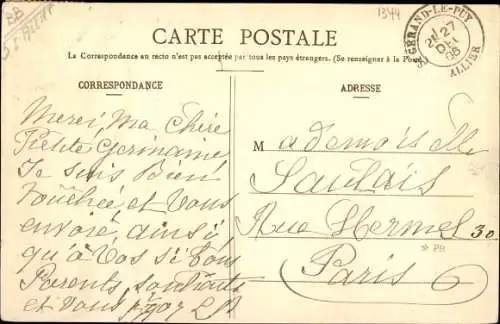 BB
1344
CARTE POSTALE
La Correspondance au recto n'est pas acceptée par tous les pays étrangers. (Se renseigner à la Poste)
ST GÉRAND-LE-PUY
27
DÉC
06
ALLIER
CORRESPONDANCE
ADRESSE
Merci, Ma Chère
Petite Germaine
Je suis Bien
touchée et Vous
envoie ainsi
qu'à Vos si bons
Parents, souhaits
et Vous
Mademoiselle
Saulais
Rue Hermel 30
Paris